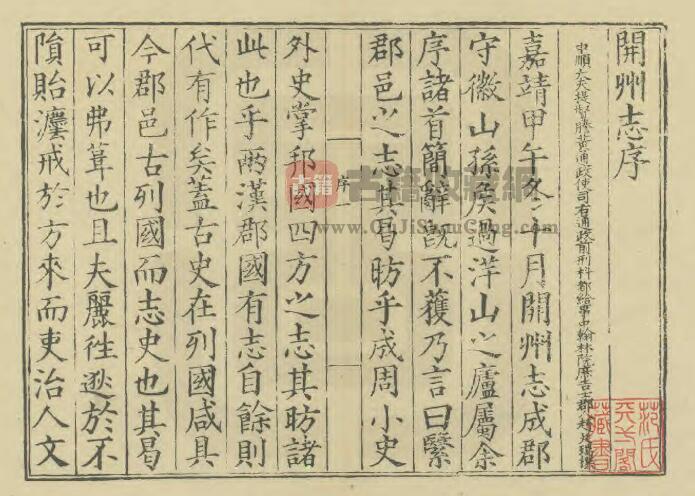 開州志序
中順大夫提督謄黃通政使司右通政前刑科都給事中翰林院庶吉士郡人趙廷瑞撰
嘉靖甲午冬十月開州志成郡
守徽山孫矦過洋山之廬屬余
序諸首簡辭旣不獲乃言曰繄
郡邑之志其曷昉乎成周小史
序一
外史掌邦國四方之志其昉諸
此也乎兩漢郡國有志自餘則
代有作矣蓋古史在列國咸具
今郡邑古列國而志史也其曷
可以弗葺也且夫麗徃逖於不
隤貽灋戒於方來而吏治人文
范氏天一閣藏書
古籍
古籍收藏網
www.GuJiShouCang.com